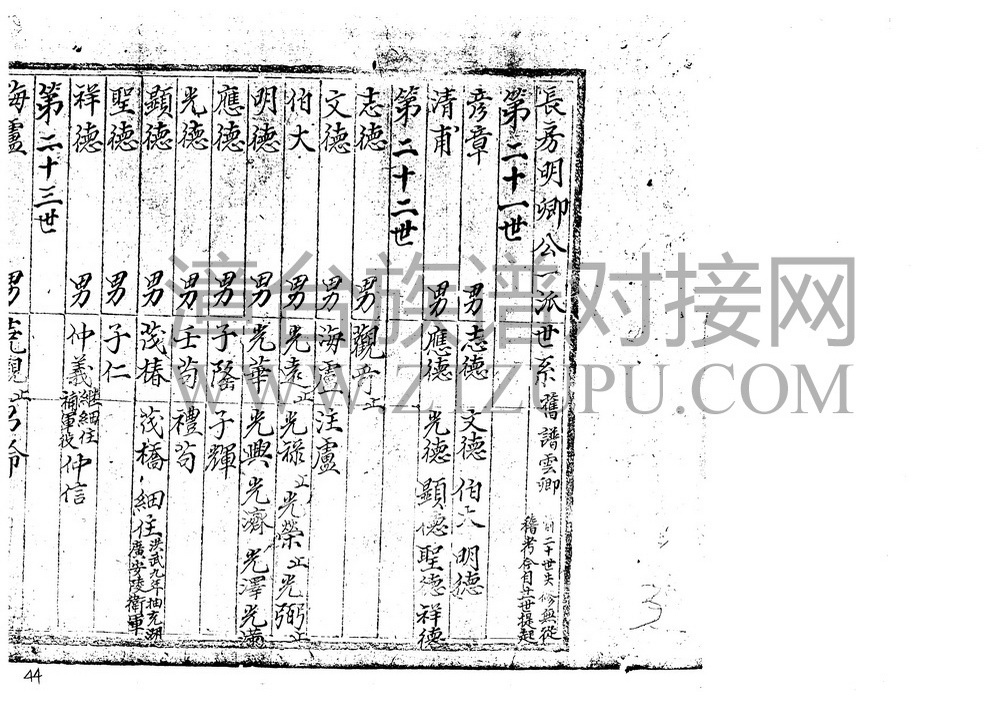 長房明卿公一派世系 舊譜雲卿
二十世失修無從
稽考今自廿一世提起
第二十一世
彦章 男 志德 文德 伯大 明德
清甫 男 應德 光德 顯德 聖德 祥德
第二十二世
志德 男 觀音止
文德 男 海盧 注盧
伯大 男 光遠止 光禄止 光榮止 光弼止
明德 男 光華 光興 光濟 光澤 光滿
應德 男 子隆 子輝
光德 男 壬苟 禮苟
顯德 男 茂椿 茂橋 細住 洪武九年抽充湖
廣安陵衛軍
聖德 男 子仁
祥德 男 仲義 継細住
補軍役 仲信
第二十三世
海盧 男
漳台族谱对接网
WWW.ZTZUPU.COM
44